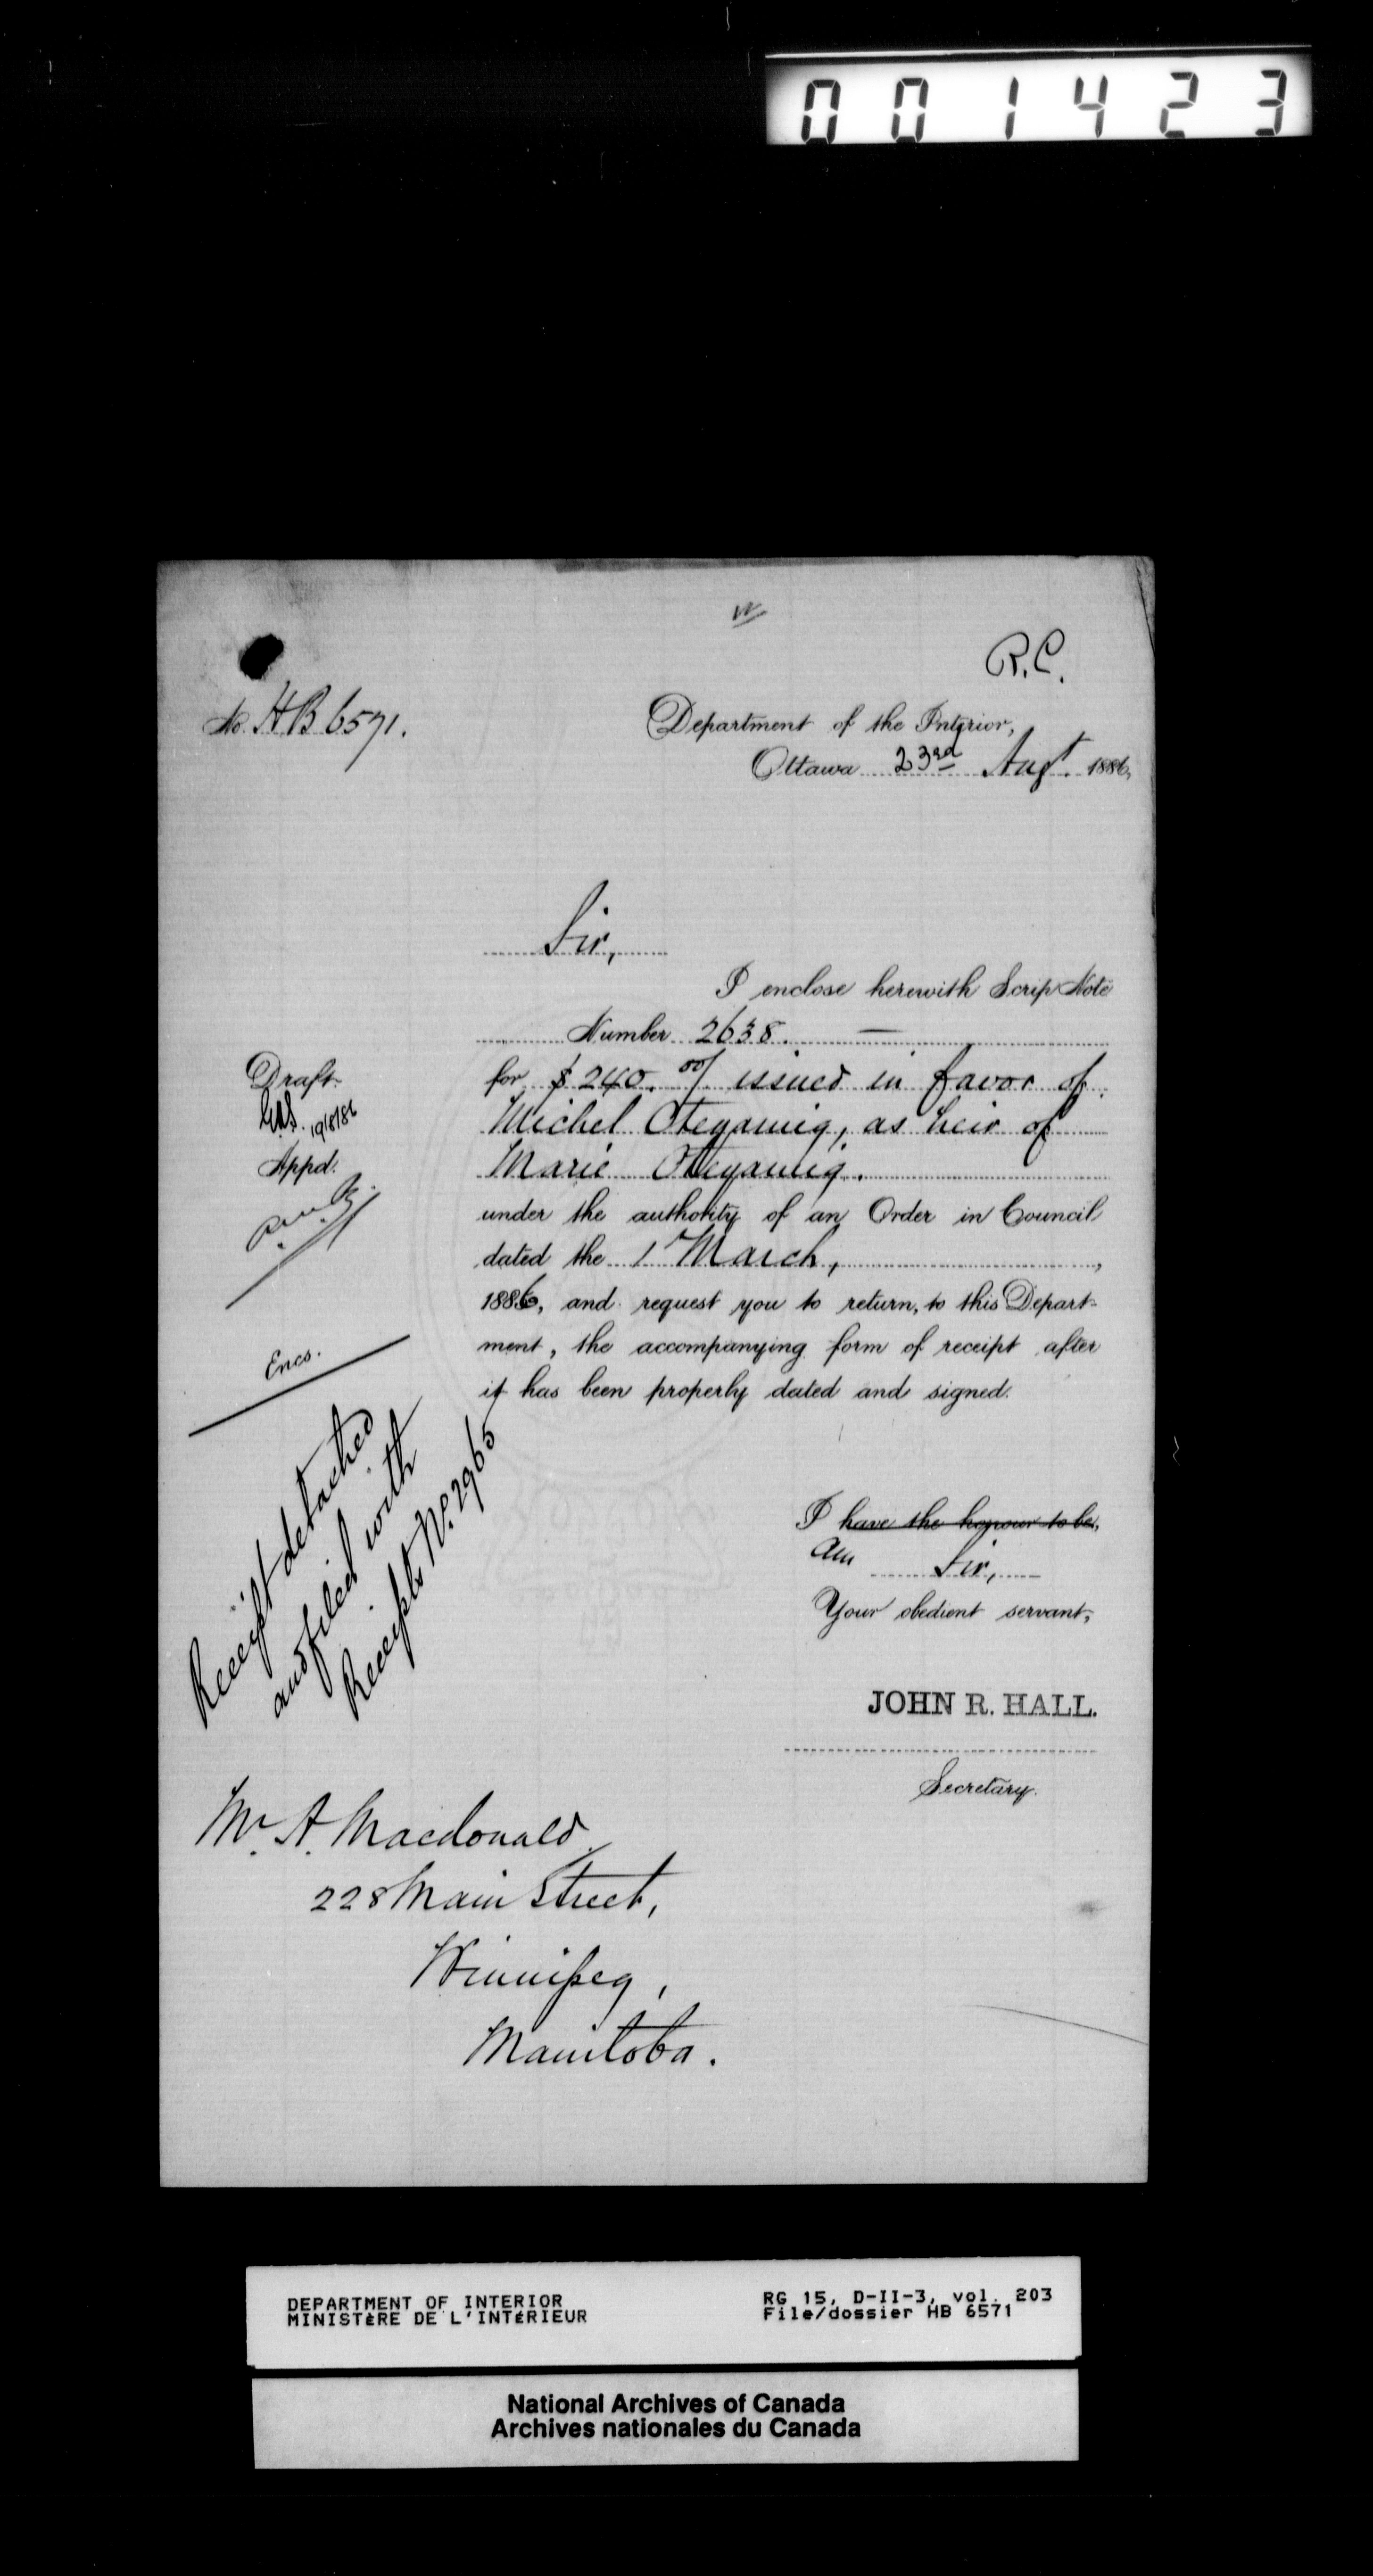 001423
R.C.
No. HB 6571.
Department of the Interior,
Ottawa 23rd Augt. 1886,
Sir,
I enclose herewith Scrip Note
Number 2638. —
for $240.00/ issued in favor of
Michel Oteyamig, as heir of
Marie Oteyamig.
under the authority of an Order in Council
dated the 1st March, ,
1886, and request you to return, to this Depart-
ment, the accompanying form of receipt after
it has been properly dated and signed.
Draft.
19/8/86
Appd.
Encs.
Receipt detached
and filed with
Receipts No. 2965
I have the honour to be,
am Sir,
Your obedient servant,
JOHN R. HALL.
Secretary.
Mr. A. Macdonald
228 Main Street,
Winnipeg,
Manitoba.
DEPARTMENT OF INTERIOR
MINISTÈRE DE L'INTÉRIEUR
RG 15, D-II-3, vol. 203
File/dossier HB 6571
National Archives of Canada
Archives nationales du Canada